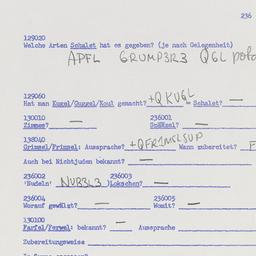 236
129020
Welche Arten Schalet hat es gegeben? (je nach Gelegenheit)
APFL GRUMP3R3 QGL
129060
Hat man Kugel/Guggel/Koul gemacht? +QKUGL = Schalet? —
130010 236001
Zimmes? — Soßkugel? —
138040
Grimsel/Frimsel: Aussprache? +QFRIMSLSUP Wann zubereitet? F
Auch bei Nichtjuden bekannt? —
236002 236003
'Nudeln' NUR3L3 )Lokschen? —
236004 236005
Worauf gewälgt? — Womit? —
130100
Farfel/Ferwel: bekannt? — Aussprache
Zubereitungsweise